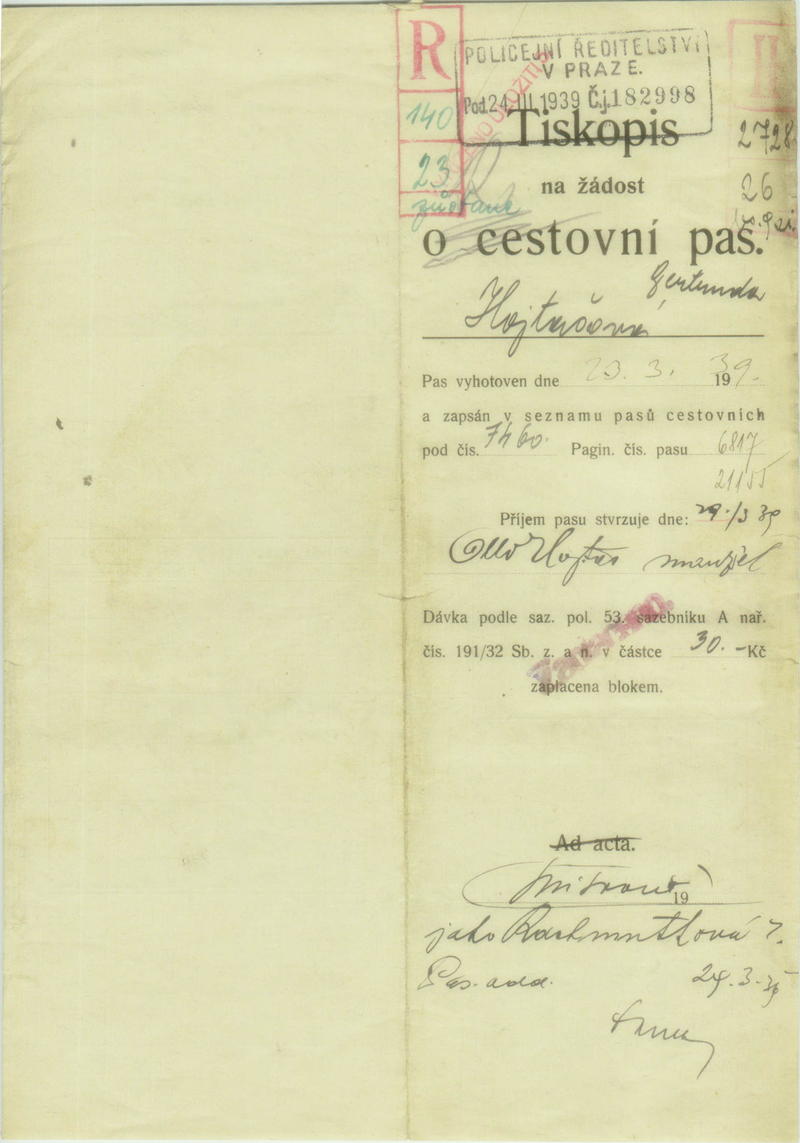 R
II
POLICEJNÍ ŘEDITELSTVÍ
V PRAZE.
Pod 24 III 1939 Č.j. 182998
140
23
zůstane
2728
26
Tiskopis
na žádost
o cestovní pas.
Gertruda
Hojtašová
Pas vyhotoven dne 23. 3. 1939.
a zapsán v seznamu pasů cestovních
pod čís. 7460. Pagin. čís. pasu 6817
21155
Příjem pasu stvrzuje dne: 29./3 39
Otto Hojtaš manžel
Dávka podle saz. pol. 53. sazebníku A nař.
čís. 191/32 Sb. z. a n. v částce 30.- Kč
zaplacena blokem.
Ad acta.
19
jako
Pas. odd. 24.3.39